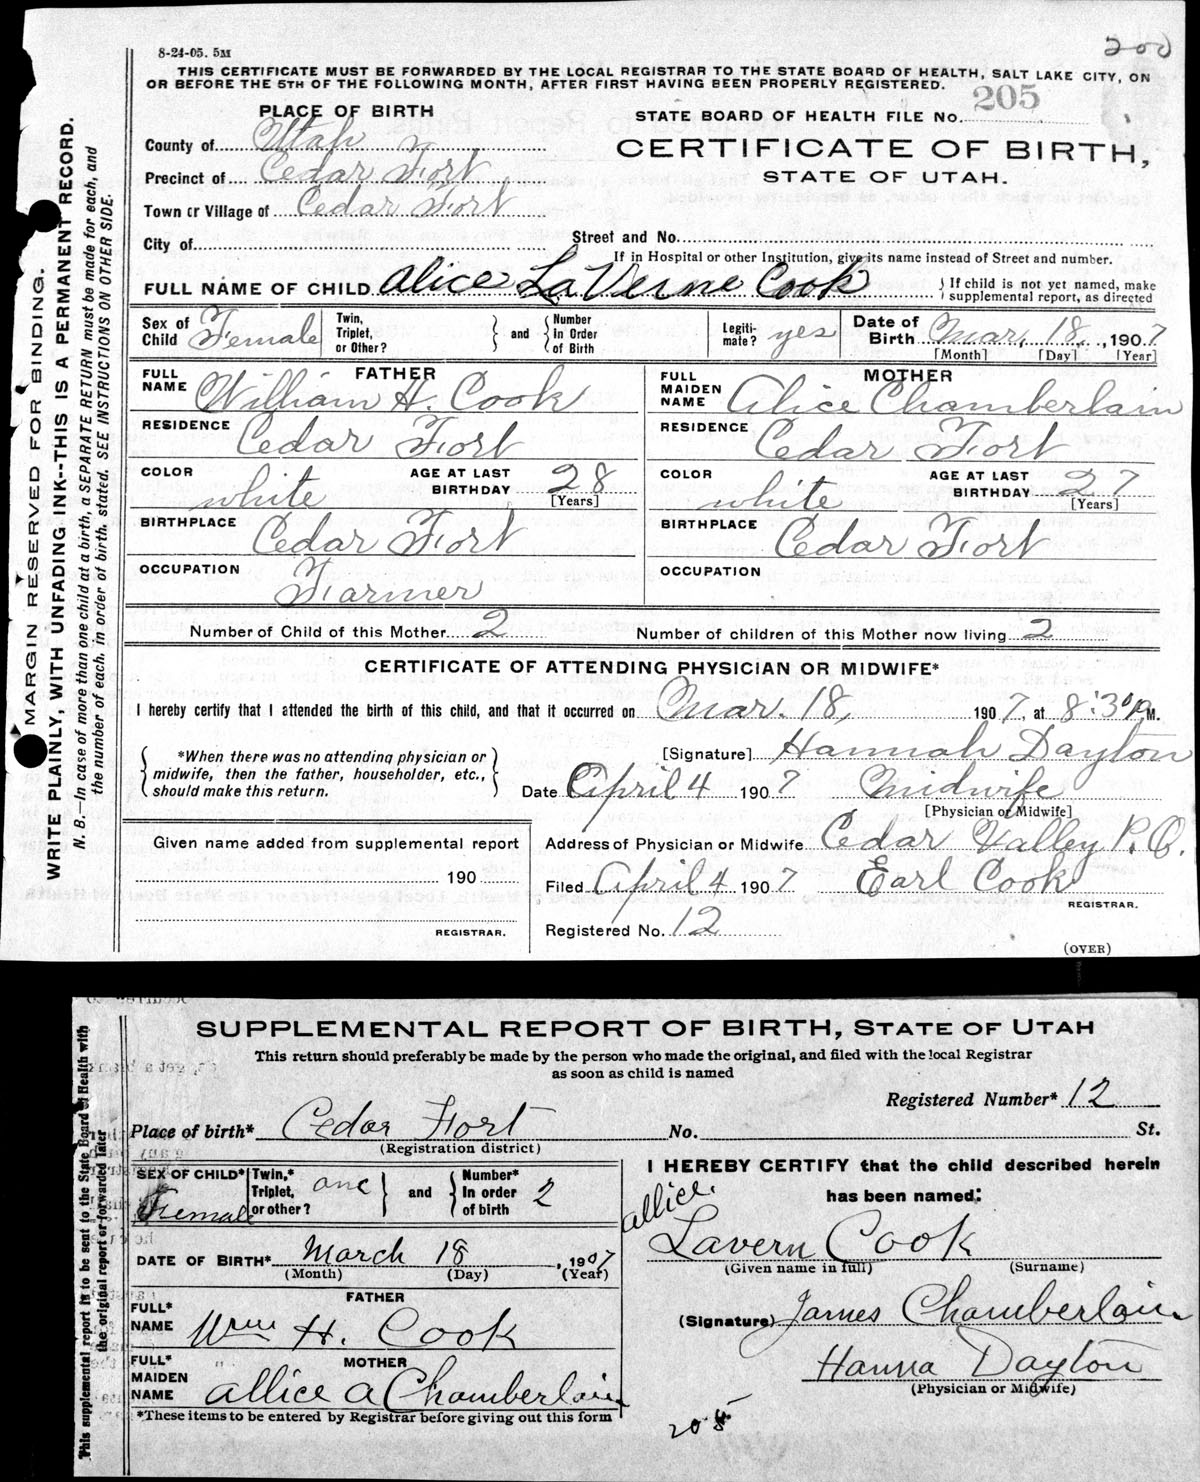 8-24-05. 5M
200
THIS CERTIFICATE MUST BE FORWARDED BY THE LOCAL REGISTRAR TO THE STATE BOARD OF HEALTH, SALT LAKE CITY, ON
OR BEFORE THE 5TH OF THE FOLLOWING MONTH, AFTER FIRST HAVING BEEN PROPERLY REGISTERED.
PLACE OF BIRTH
STATE BOARD OF HEALTH FILE No. 205
County of Utah
CERTIFICATE OF BIRTH,
Precinct of Cedar Fort
STATE OF UTAH.
Town or Village of Cedar Fort
City of
Street and No.
If in Hospital or other Institution, give its name instead of Street and number.
FULL NAME OF CHILD Alice LaVerne Cook
If child is not yet named, make
supplemental report, as directed
Sex of Child Female
Twin, Triplet, or Other? and Number in Order of Birth
Legiti-mate? yes
Date of Birth Mar. 18, 1907
[Month] [Day] [Year]
FATHER
FULL NAME William H. Cook
RESIDENCE Cedar Fort
COLOR white
AGE AT LAST BIRTHDAY 28
[Years]
BIRTHPLACE Cedar Fort
OCCUPATION Farmer
MOTHER
FULL MAIDEN NAME Alice Chamberlain
RESIDENCE Cedar Fort
COLOR white
AGE AT LAST BIRTHDAY 27
[Years]
BIRTHPLACE Cedar Fort
OCCUPATION
Number of Child of this Mother 2
Number of children of this Mother now living 2
CERTIFICATE OF ATTENDING PHYSICIAN OR MIDWIFE*
I hereby certify that I attended the birth of this child, and that it occurred on Mar. 18, 1907, at 8:30 P.M.
*When there was no attending physician or
midwife, then the father, householder, etc.,
should make this return.
[Signature] Hannah Dayton
Date April 4 1907 Midwife
[Physician or Midwife]
Address of Physician or Midwife Cedar Valley P.O.
Given name added from supplemental report
190
REGISTRAR.
Filed April 4 1907 Earl Cook
REGISTRAR.
Registered No. 12
(OVER)
MARGIN RESERVED FOR BINDING.
WRITE PLAINLY, WITH UNFADING INK--THIS IS A PERMANENT RECORD.
N. B.—In case of more than one child at a birth, a SEPARATE RETURN must be made for each, and
the number of each, in order of birth, stated. SEE INSTRUCTIONS ON OTHER SIDE.
SUPPLEMENTAL REPORT OF BIRTH, STATE OF UTAH
This return should preferably be made by the person who made the original, and filed with the local Registrar
as soon as child is named
Registered Number* 12
Place of birth* Cedar Fort No. St.
(Registration district)
SEX OF CHILD* Female
Twin,* Triplet, or other? one and Number* In order of birth 2
DATE OF BIRTH* March 18, 1907
(Month) (Day) (Year)
FATHER
FULL* NAME Wm H. Cook
MOTHER
FULL* MAIDEN NAME allice a Chamberlain
*These items to be entered by Registrar before giving out this form
I HEREBY CERTIFY that the child described herein
has been named:
allice.
Lavern Cook
(Given name in full) (Surname)
(Signature) James Chamberlain
Hanna Dayton
(Physician or Midwife)
205
This supplemental report is to be sent to the State Board of Health with
the original report or forwarded later